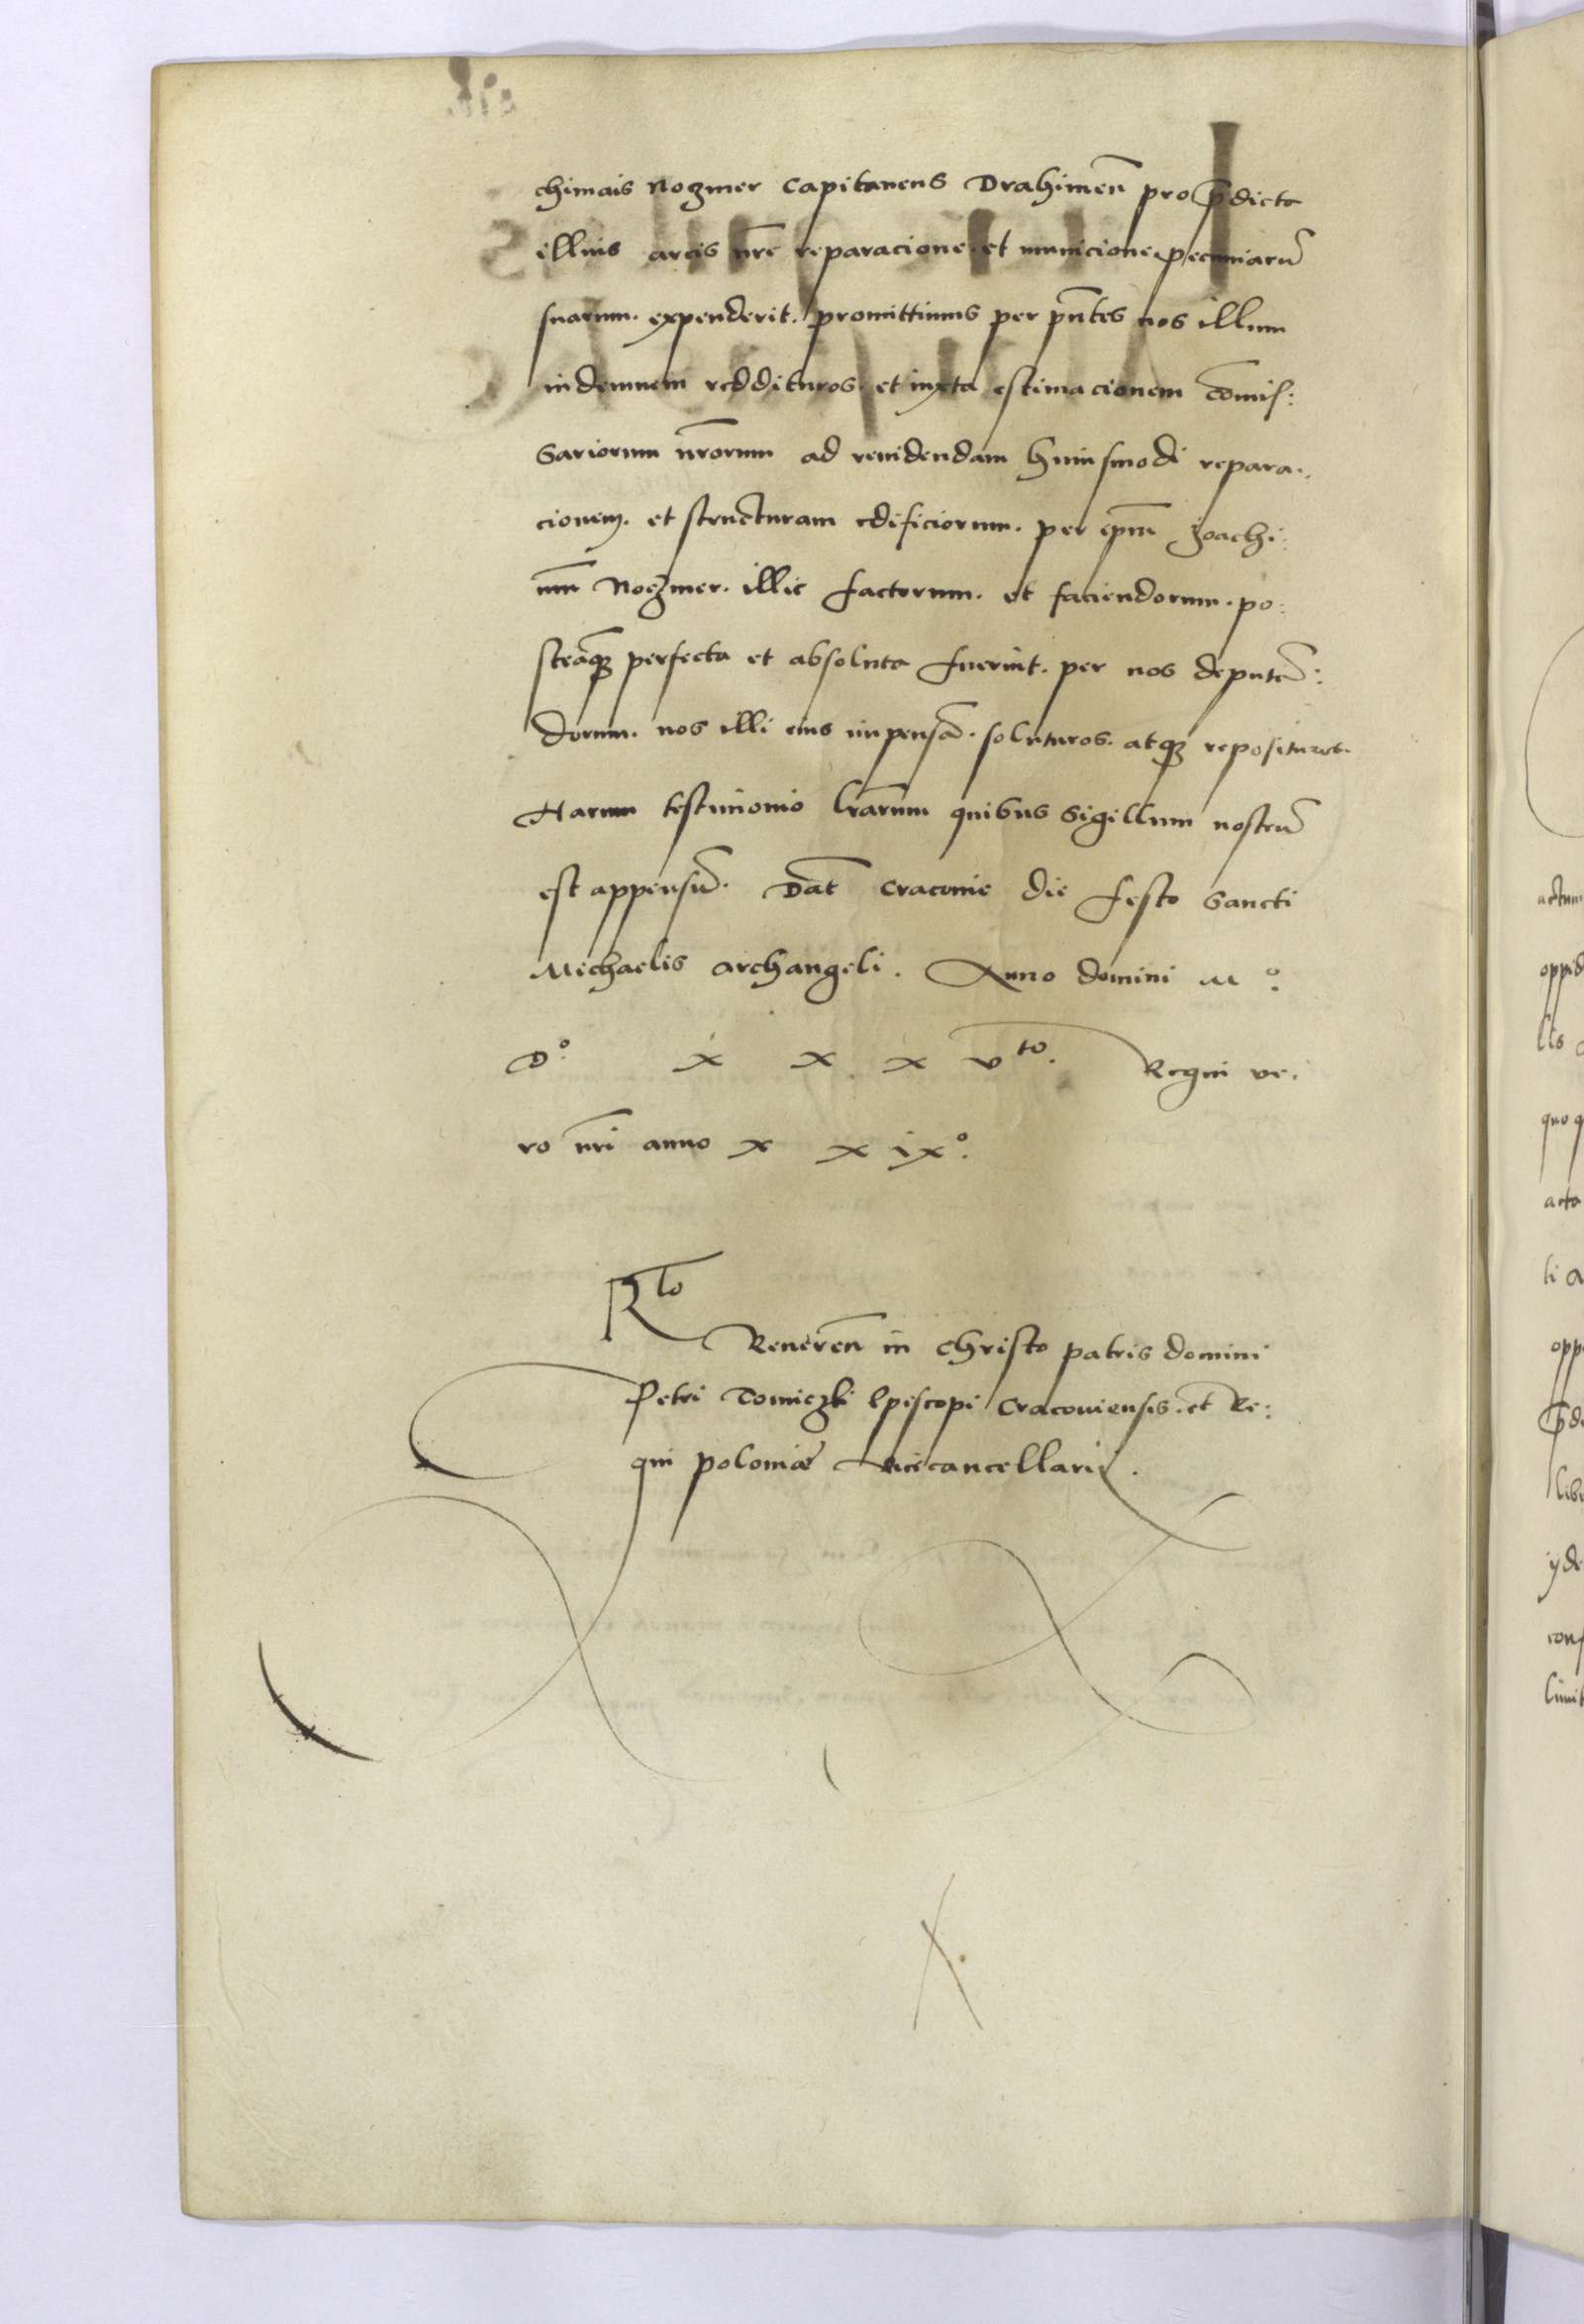 chimus Nogmer Capitaneus Drahimen̄ pro p̄dicta
illius arcis nr̄e reparacione. et municione pecuniarū
suarum. expenderit. promittimus per pn̄tes nos illum
indemnem reddituros. et iuxta estimacionem Com̄is:
sariorum nr̄orum ad reuidendam huiusmodi repara..
cionem. et structuram edificiorum. per ip̄m Joachi:
mum Nogmer. illic factorum. et faciendorum. po:
steaq̃ꝫ perfecta et absoluta fuerint. per nos deputā:
dorum. nos illi eius impensā. soluturos. atqꝫ reposituros.
Harum testimonio lr̄arum quibus Sigillum nostrū
est appensū. Dat̄ Cracouie die festo Sancti
Michaelis archangeli. Anno domini Mº:
Dº: x x x vto. Regni ve.
ro nr̄i anno x x ixº.
Rlo
Reueren̄ in Christo patris domini
Petri Tomiczki Episcopi Cracouiensis. et Re:
gni poloniæ Vicecancellarij.
actum
oppid
lis
quo q
acta
li a
oppi
p̄di
libe
ij de
cons
limit